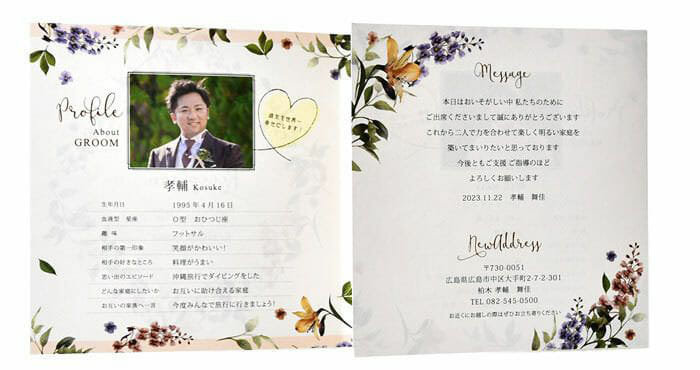 Profile
About
GROOM
彼女を世界一
幸せにします！
孝輔 Kosuke
生年月日 1995年4月16日
血液型 星座 O型 おひつじ座
趣味 フットサル
相手の第一印象 笑顔がかわいい！
相手の好きなところ 料理がうまい
思い出のエピソード 沖縄旅行でダイビングをした
どんな家庭にしたいか お互いに助け合える家庭
お互いの家族へ一言 今度みんなで旅行に行きましょう！
Message
本日はおいそがしい中 私たちのために
ご出席くださいまして誠にありがとうございます
これから二人で力を合わせて楽しく明るい家庭を
築いてまいりたいと思っております
今後ともご支援 ご指導のほど
よろしくお願いします
2023.11.22 孝輔 舞佳
NewAddress
〒730-0051
広島県広島市中区大手町2-7-2-301
柏木 孝輔 舞佳
TEL 082-545-0500
お近くにお越しの際はぜひお立ち寄りください